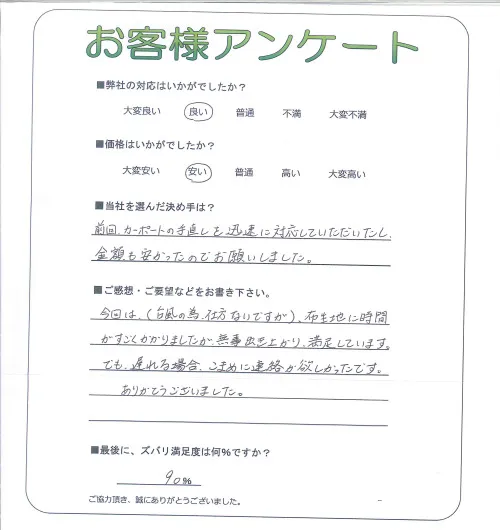 お客様アンケート
■弊社の対応はいかがでしたか？
大変良い 良い 普通 不満 大変不満
■価格はいかがでしたか？
大変安い 安い 普通 高い 大変高い
■当社を選んだ決め手は？
前回、カーポートの手直しを迅速に対応していただいたし、
金額も安かったのでお願いしました。
■ご感想・ご要望などをお書き下さい。
今回は、(台風の為、仕方ないですが)、布生地に時間
がすごくかかりましたが、無事出き上がり、満足しています。
でも、遅れる場合、こまめに連絡が欲しかったです。
ありがとうございました。
■最後に、ズバリ満足度は何％ですか？
90％
ご協力頂き、誠にありがとうございました。